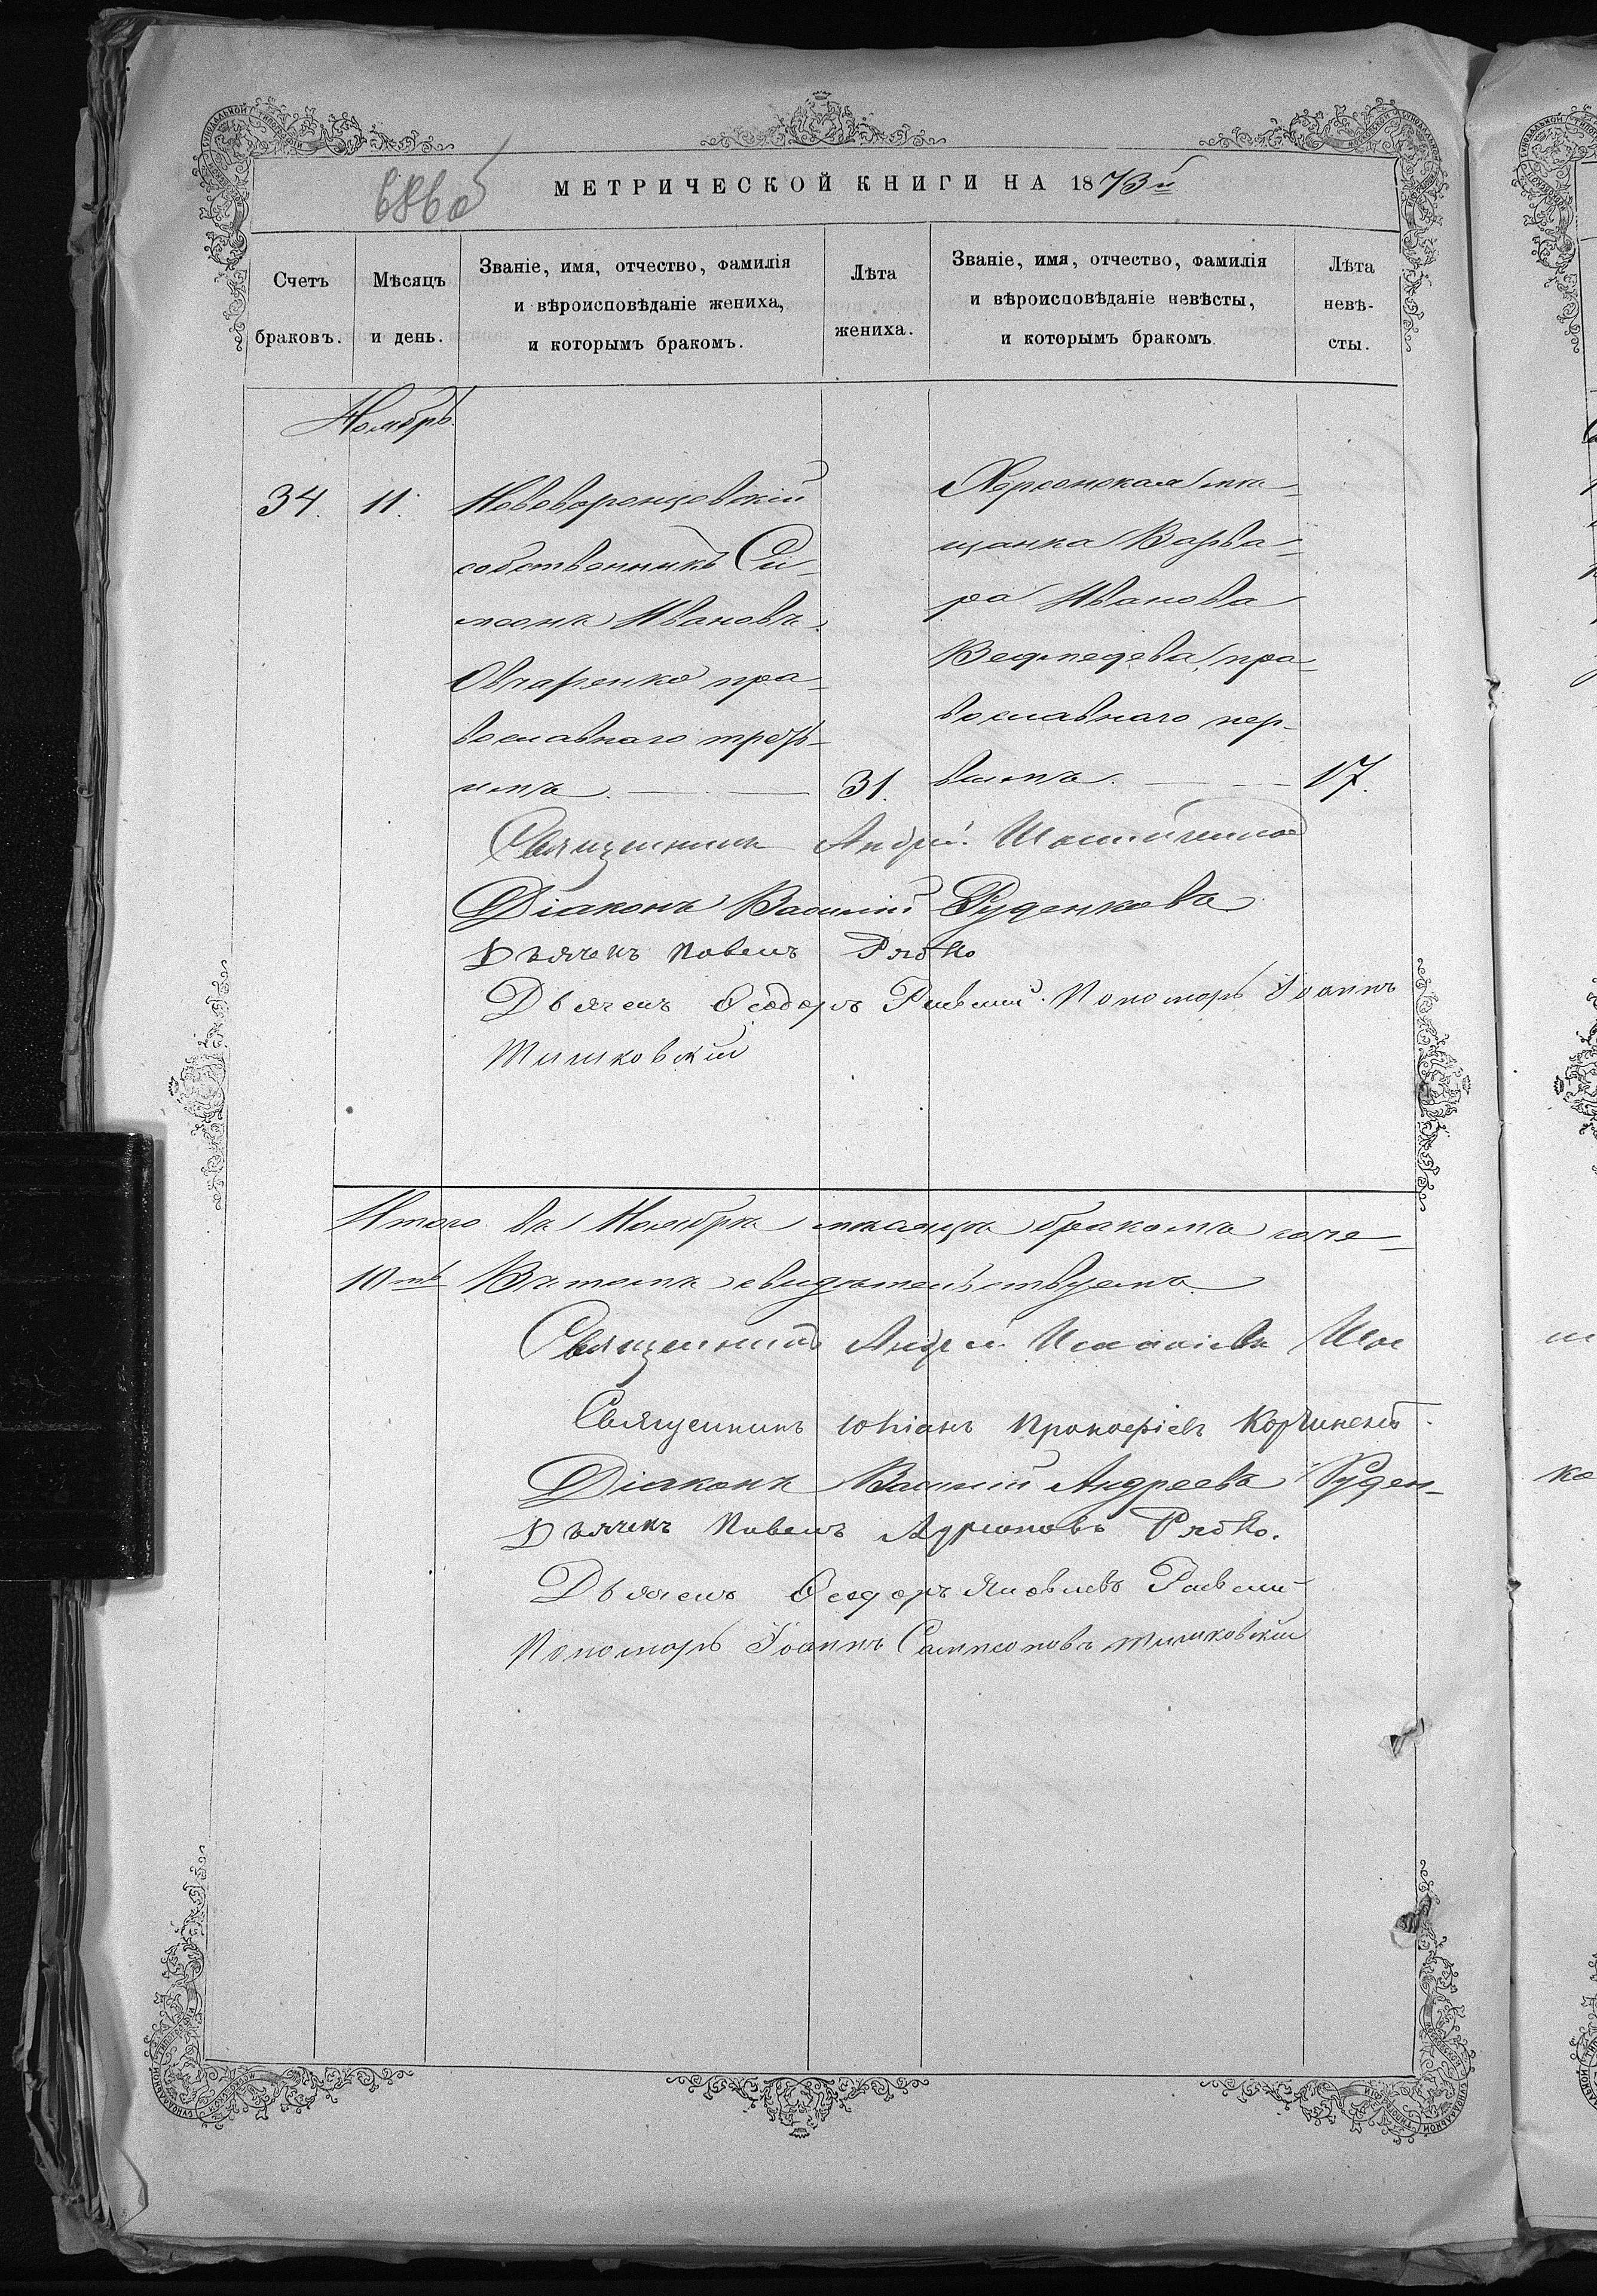 МЕТРИЧЕСКОЙ КНИГИ НА 1873й
Счетъ браковъ.
Мѣсяцъ и день.
Званіе, имя, отчество, фамилія
и вѣроисповѣданіе жениха,
и которымъ бракомъ.
Лѣта
жениха.
Званіе, имя, отчество, фамилія
и вѣроисповѣданіе невѣсты,
и которымъ бракомъ.
Лѣта
невѣ-
сты.
Ноябрь.
34. 11.
Нововоронцовскій
собственникъ Си-
меонъ Ивановъ
Овчаренко пра-
вославнаго треть-
имъ. 31.
Херсонская мѣ-
щанка Варва-
ра Иванова
Ведмедева, пра-
вославнаго пер-
вымъ. 17.
Священникъ Андрей
Діаконъ Василій Руденковъ
Дьячекъ Павелъ Рябко
Дьячекъ Ѳеодоръ Раевскій. Пономарь Іоаннъ
Тишковскій
Итого въ Ноябрѣ мѣсяцѣ бракомъ соче-
10ть Въ томъ свидѣтельствуемъ
Священникъ Андрей Исааківъ
Священникъ Юліанъ Прокофіевъ
Діаконъ Василій Андреевъ Руден-
Дьячекъ Павелъ Рябко.
Дьячекъ Ѳеодоръ Яковлевъ Раевскій
Пономарь Іоаннъ Сампсоновъ Тишковскій